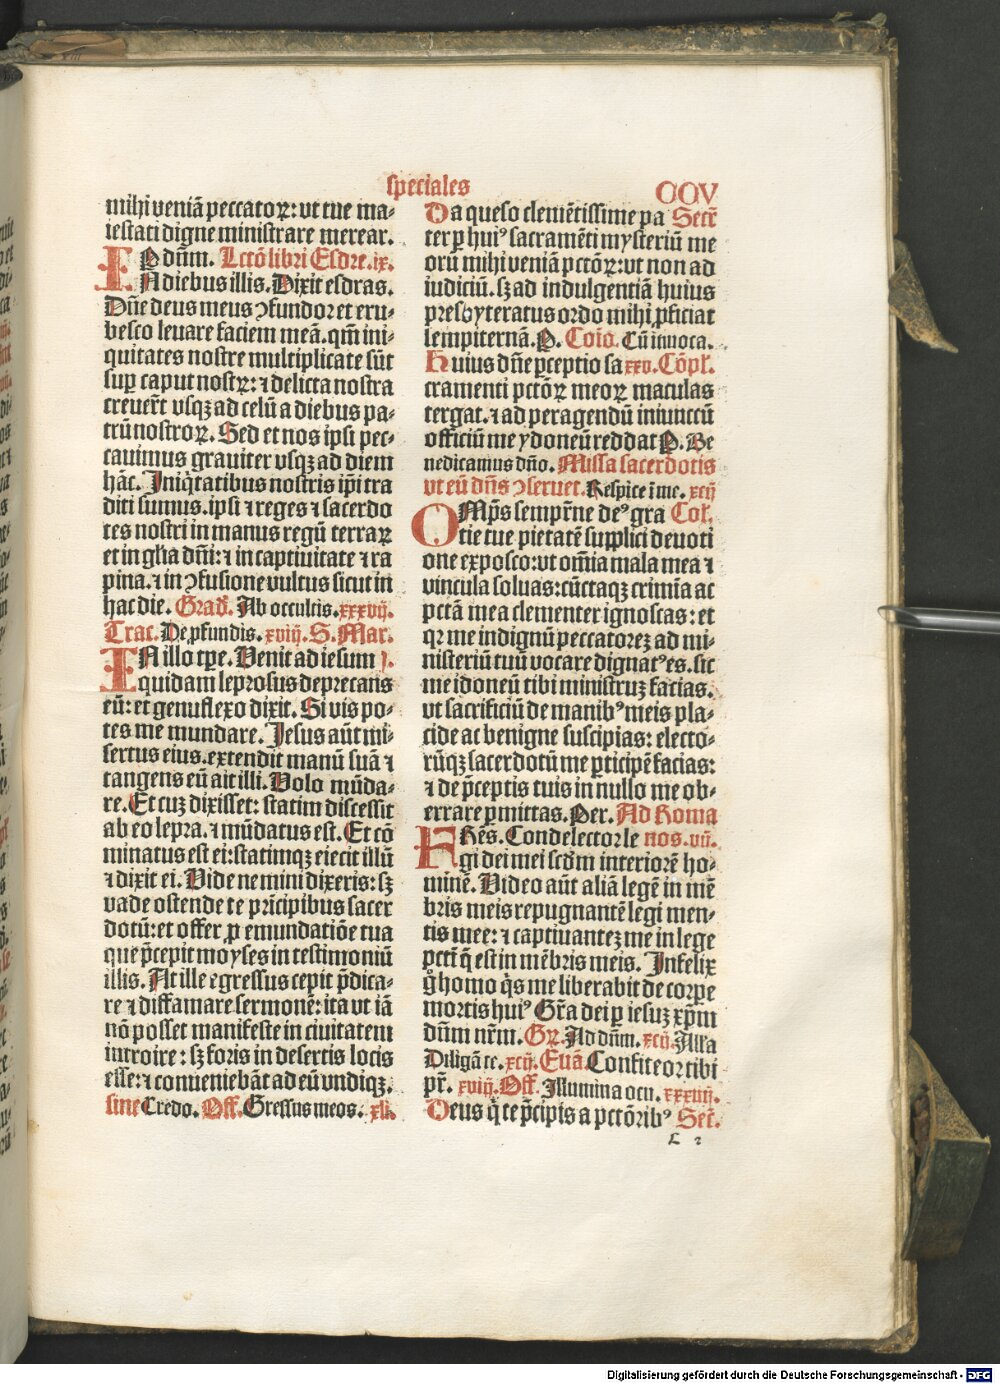 speciales
CCV
mihi veniā peccatoꝝ: vt tue ma⸗
iestati digne ministrare merear.
P dn̄m. Lctō libri Esdre.ix.
IN diebus illis. Dixit esdras.
Dn̄e deus meus ↄfundor et eru⸗
besco leuare faciem meā. qm̄ ini⸗
quitates nostre multiplicate sūt
suꝑ caput nostrꝝ: ⁊ delicta nostra
creuert̄ vsqꝫ ad celū a diebus pa⸗
trū nostroꝝ. Sed et nos ipsi pec⸗
cauimus grauiter vsqꝫ ad diem
hāc. Iniq̇tatibus nostris ip̄i tra
diti sumus. ipsi ⁊ reges ⁊ sacerdo
tes nostri in manus regū terraꝝ
et in gl̄ia dn̄i: ⁊ in captiuitate ⁊ ra
pina. ⁊ in ↄfusione vultus sicut in
hac die. Grad̄. Ab occultis. xxxvij.
Trac. De ꝓfundis. xviij. S. Mar.
IN illo tꝑe. Venit ad iesum j.
quidam leprosus deprecans
eū: et genuflexo dixit. Si vis po⸗
tes me mundare. Jesus aūt mi⸗
sertus eius. extendit manū suā ⁊
tangens eū ait illi. Volo mūda⸗
re. Et cuꝫ dixisset: statim discessit
ab eo lepra. ⁊ mūdatus est. Et cō
minatus est ei: statimqꝫ eiecit illū
⁊ dixit ei. Vide nemini dixeris: sꝫ
vade ostende te prīcipibus sacer
dotū: et offer ꝓ emundatiōe tua
que p̄cepit moyses in testimoniū
illis. At ille egressus cepit p̄dica⸗
re ⁊ diffamare sermonē: ita vt iā
nō posset manifeste in ciuitatem
introire: sꝫ foris in desertis locis
esse: ⁊ conueniebāt ad eū vndiqꝫ.
sine Credo. Off. Gressus meos. xlj.
Da queso clemētissime pa Secr̄
ter ꝑ huiꝰ sacramēti mysteriū me
orū mihi veniā pctōꝝ: vt non ad
iudiciū. sꝫ ad indulgentiā huius
presbyteratus ordo mihi ꝓficiat
sempiternā. P. Cōio. Cū inuoca.
Huius dn̄e ꝑceptio sa xxv. Cōpl̄.
cramenti pctōꝝ meoꝝ maculas
tergat. ⁊ ad peragendū iniunctū
officiū me ydoneū reddat P. Be
nedicamus dn̄o. Missa sacerdotis
vt eū dn̄s ↄseruet. Respice ī me. xcij
OMp̄s semp̄rne deꝰ gra Col̄.
tie tue pietatē supplici deuoti
one exposco: vt om̄ia mala mea ⁊
vincula soluas: cūctaqꝫ crimīa ac
pctā mea clementer ignoscas: et
qꝛ me indignū peccatorēꝫ ad mi⸗
nisteriū tuū vocare dignatꝰ es. sic
me idoneū tibi ministruꝫ facias.
vt sacrificiū de manibꝰ meis pla⸗
cide ac benigne suscipias: electo⸗
rūqꝫ sacerdotū me ꝑticipē facias:
⁊ de p̄ceptis tuis in nullo me ob⸗
errare ꝑmittas. Per. Ad Roma
FRēs. Condelector le nos. vij.
gi dei mei scd̄m interiorē ho⸗
minē. Video aūt aliā legē in mē
bris meis repugnantē legi men⸗
tis mee: ⁊ captiuanteꝫ me in lege
pcti q̄ est in mēbris meis. Infelix
g̊ homo q̇s me liberabit de corꝑe
mortis huiꝰ? Gr̄a dei ꝑ iesuꝫ xp̄m
dn̄m nr̄m. Gꝝ. Ad dn̄m. xcij. Alla
Diligā te. xcij. Euā. Confiteor tibi
pr̄. xviij. Off. Illumina ocu. xxxviij.
Deus q̇ te p̄cipis a pctōribꝰ Secr̄.
L 2
Digitalisierung gefördert durch die Deutsche Forschungsgemeinschaft - DFG